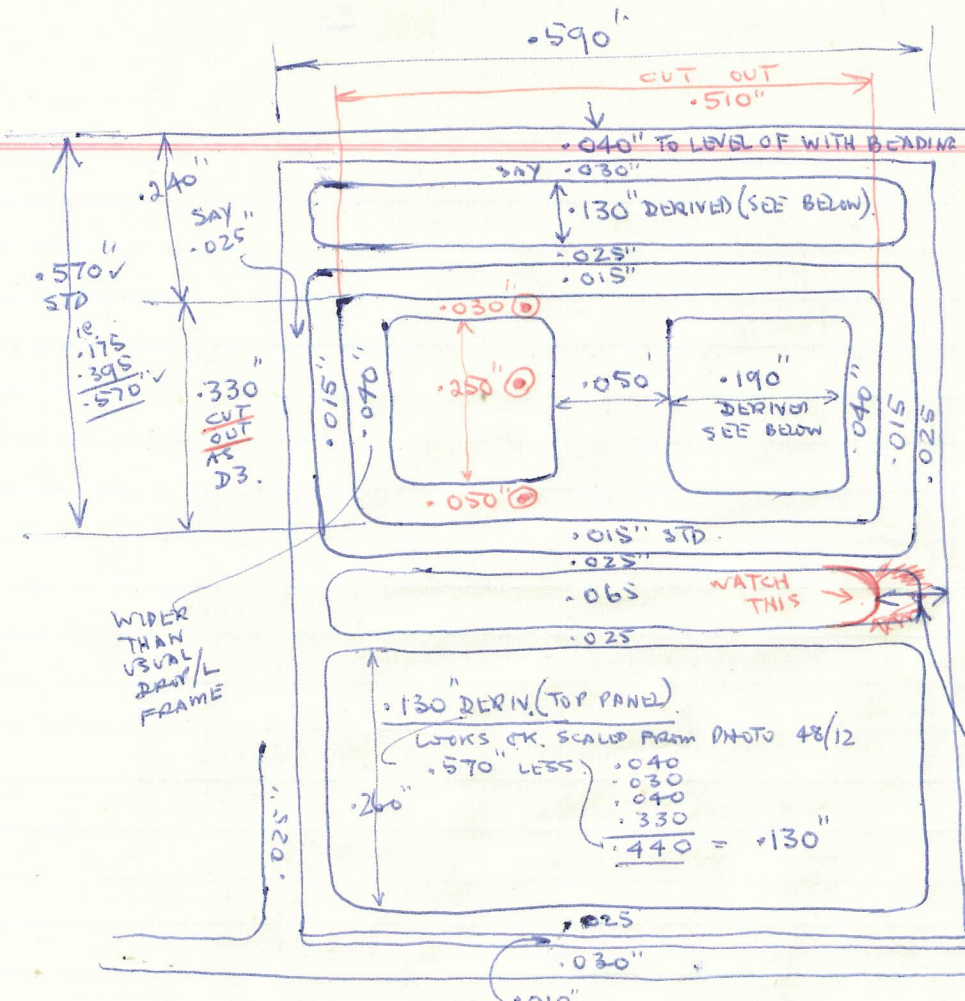 .590"
CUT OUT
.510"
.040" TO LEVEL OF WITH BEADING
SAY .030"
.240"
SAY "
.025
.130" DERIVED (SEE BELOW).
.025"
.015"
.570" ✓
STD
ie.
.175
.395
.570" ✓
.330"
CUT
OUT
AS
D3.
.015"
.040"
.030"
.250"
.050"
.050
.190"
DERIVED
SEE BELOW
.040"
.015
.025
.015" STD.
.025"
.065
WATCH
THIS
.025
WIDER
THAN
USUAL
DROP/L
FRAME
.130" DERIV. (TOP PANEL)
LOOKS OK. SCALED FROM PHOTO 48/12
.570" LESS
.040
.030
.040
.330
.440 = .130"
.260"
.025"
.025
.030"
.010"